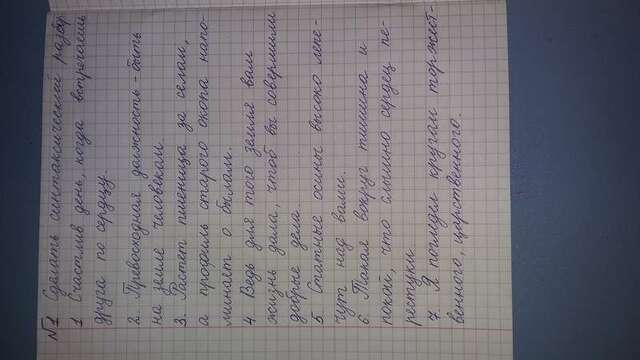 №1 Сделать синтаксический разбор
1 Счастлив день, когда встречаешь
друга по сердцу.
2. Превосходная должность - быть
на земле человеком.
3. Растет пшеница за селом,
а профиль старого окопа напо-
минает о былом.
4. Ведь для того земля вам
жизнь дала, чтоб вы совершили
добрые дела.
5 Статные осины высоко лепе-
чут над вами.
6 Такая вокруг тишина и
покой, что слышно сердец пе-
рестуки
7. Я погледел кругом торжест-
венного, царственного.